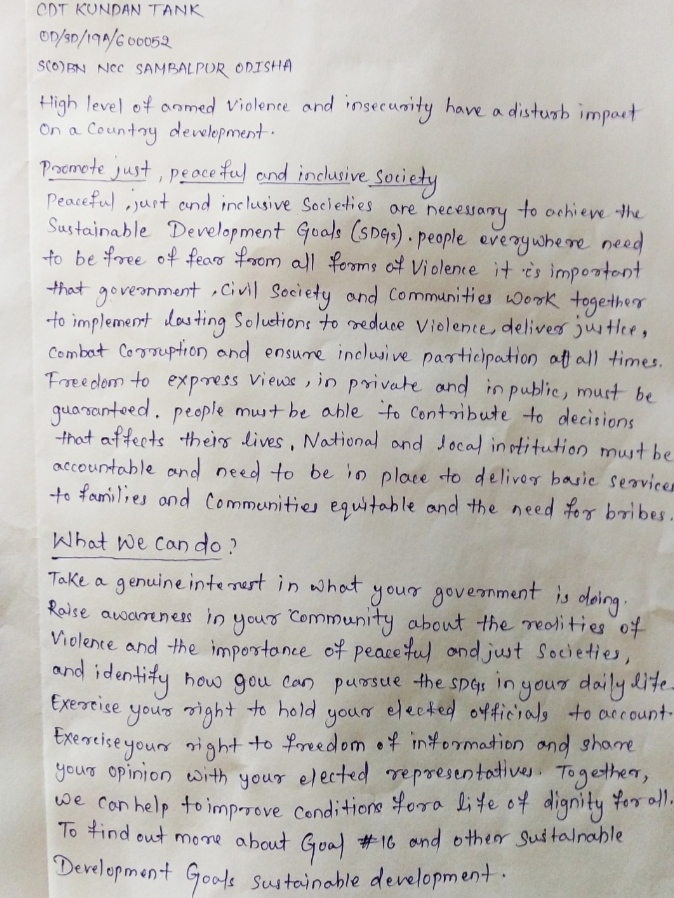 CDT KUNDAN TANK
OD/SD/19A/600052
5(O)BN NCC SAMBALPUR ODISHA
High level of armed violence and insecurity have a disturb impact
on a country development.
Promote just, peaceful and inclusive society
Peaceful, just and inclusive Societies are necessary to achieve the
Sustainable Development Goals (SDGs). people everywhere need
to be free of fear from all forms of Violence it is important
that government, Civil Society and Communities work together
to implement lasting Solutions to reduce Violence, deliver justice,
Combat Corruption and ensure inclusive participation at all times.
Freedom to express views, in private and in public, must be
guaranteed. people must be able to contribute to decisions
that affects their lives. National and local institution must be
accountable and need to be in place to deliver basic services
to families and Communities equitable and the need for bribes.
What We can do?
Take a genuine interest in what your government is doing.
Raise awareness in your community about the realities of
Violence and the importance of peaceful and just Societies,
and identify how you can pursue the SDGs in your daily life.
Exercise your right to hold your elected officials to account.
Exercise your right to freedom of information and share
your opinion with your elected representatives. Together,
we can help to improve Conditions for a life of dignity for all.
To find out more about Goal #16 and other Sustainable
Development Goals Sustainable development.